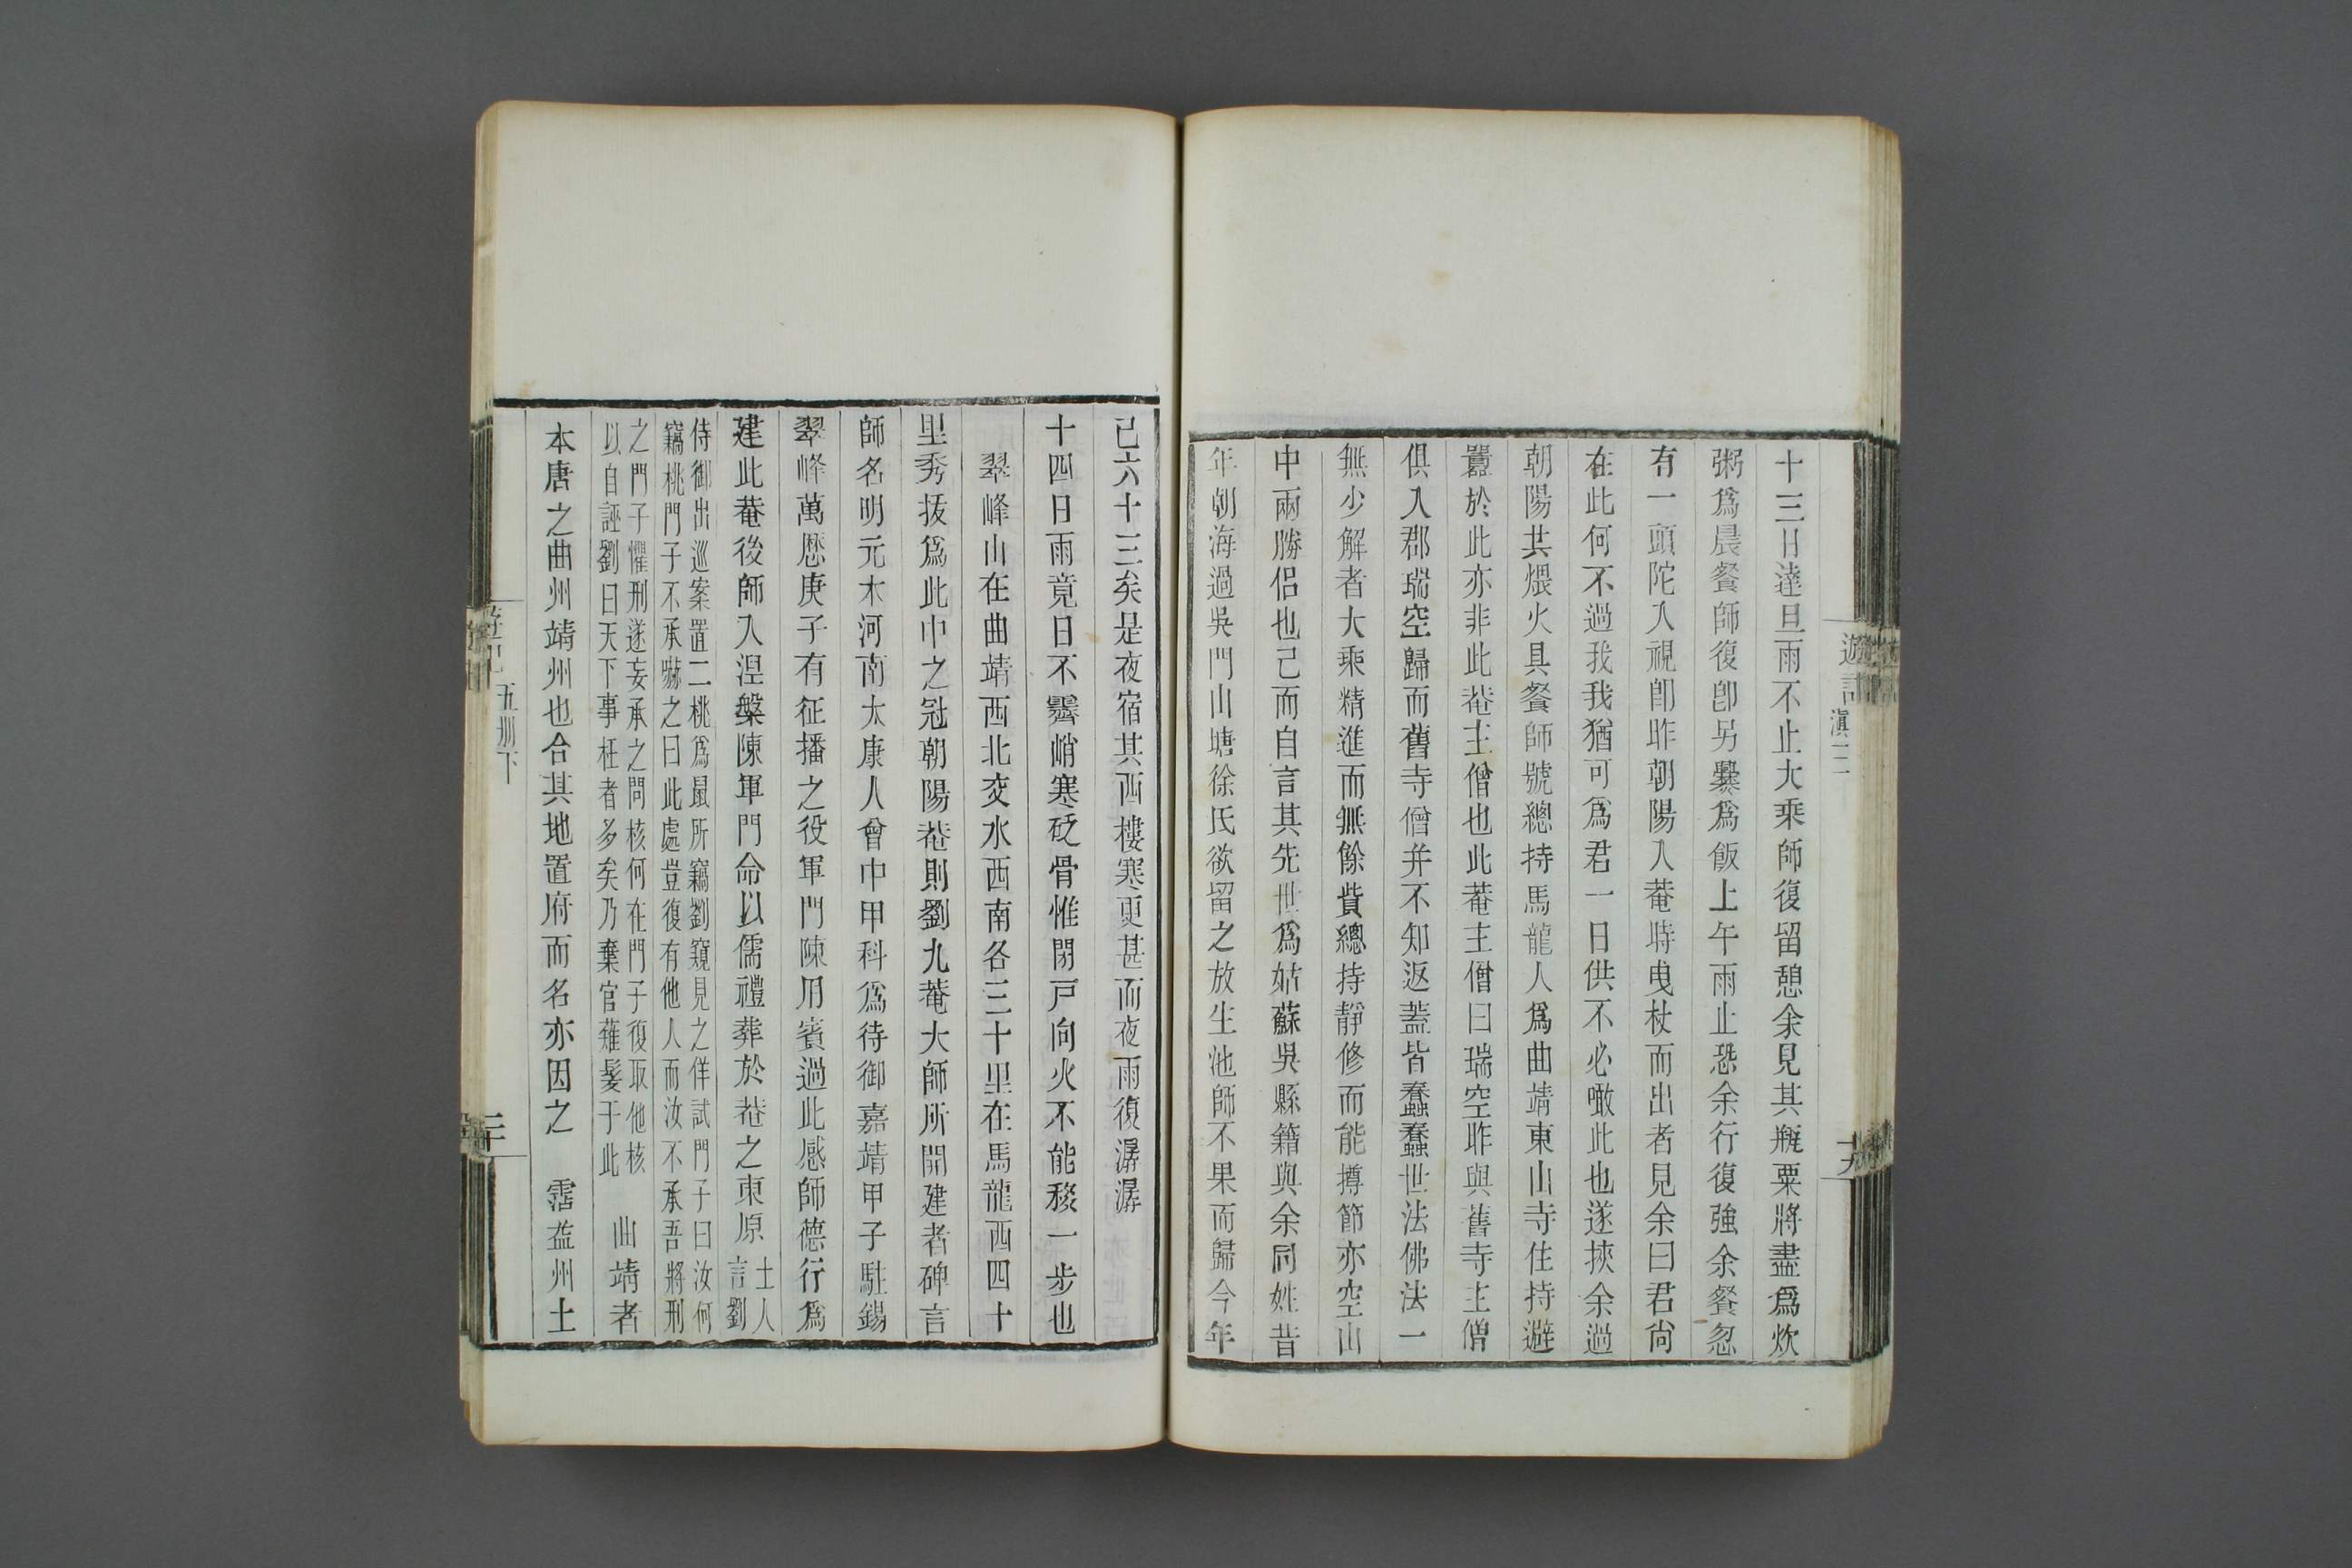 遊記
滇三
十九
十三日逹旦雨不止大乘師復留憩余見其瓶粟將盡爲炊
粥爲晨餐師復卽另爨爲飯上午雨止恐余行復強余餐忽
有一頭陀入視卽昨朝陽入菴時曳杖而出者見余曰君尙
在此何不過我我猶可爲君一日供不必啾此也遂挾余過
朝陽共煨火具餐師號總持馬龍人爲曲靖東山寺住持避
囂於此亦非此菴主僧也此菴主僧曰瑞空昨與舊寺主僧
俱入郡瑞空歸而舊寺僧并不知返蓋皆蠢蠢世法佛法一
無少解者大乘精進而無餘貲總持靜修而能撙節亦空山
中兩勝侶也已而自言其先世爲姑蘇吳縣籍與余同姓昔
年朝海過吳門山塘徐氏欲留之放生池師不果而歸今年
已六十三矣是夜宿其西樓寒更甚而夜雨復潺潺
十四日雨竟日不霽峭寒砭骨惟閉戸向火不能移一步也
翠峰山在曲靖西北交水西南各三十里在馬龍西四十
里秀拔爲此中之冠朝陽菴則劉九菴大師所開建者碑言
師名明元木河南太康人曾中甲科爲待御嘉靖甲子駐錫
翠峰萬厯庚子有征播之役軍門陳用賓過此感師德行爲
建此菴後師入涅槃陳軍門命以儒禮葬於菴之東原 土人言劉
侍御出巡案置二桃爲鼠所竊劉窺見之佯試門子曰汝何
竊桃門子不承嚇之曰此處豈復有他人而汝不承吾將刑
之門子懼刑遂妄承之問核何在門子復取他核
以自誣劉曰天下事枉者多矣乃棄官薙髮于此
曲靖者
本唐之曲州靖州也合其地置府而名亦因之 霑益州土
遊記
五册下
二十